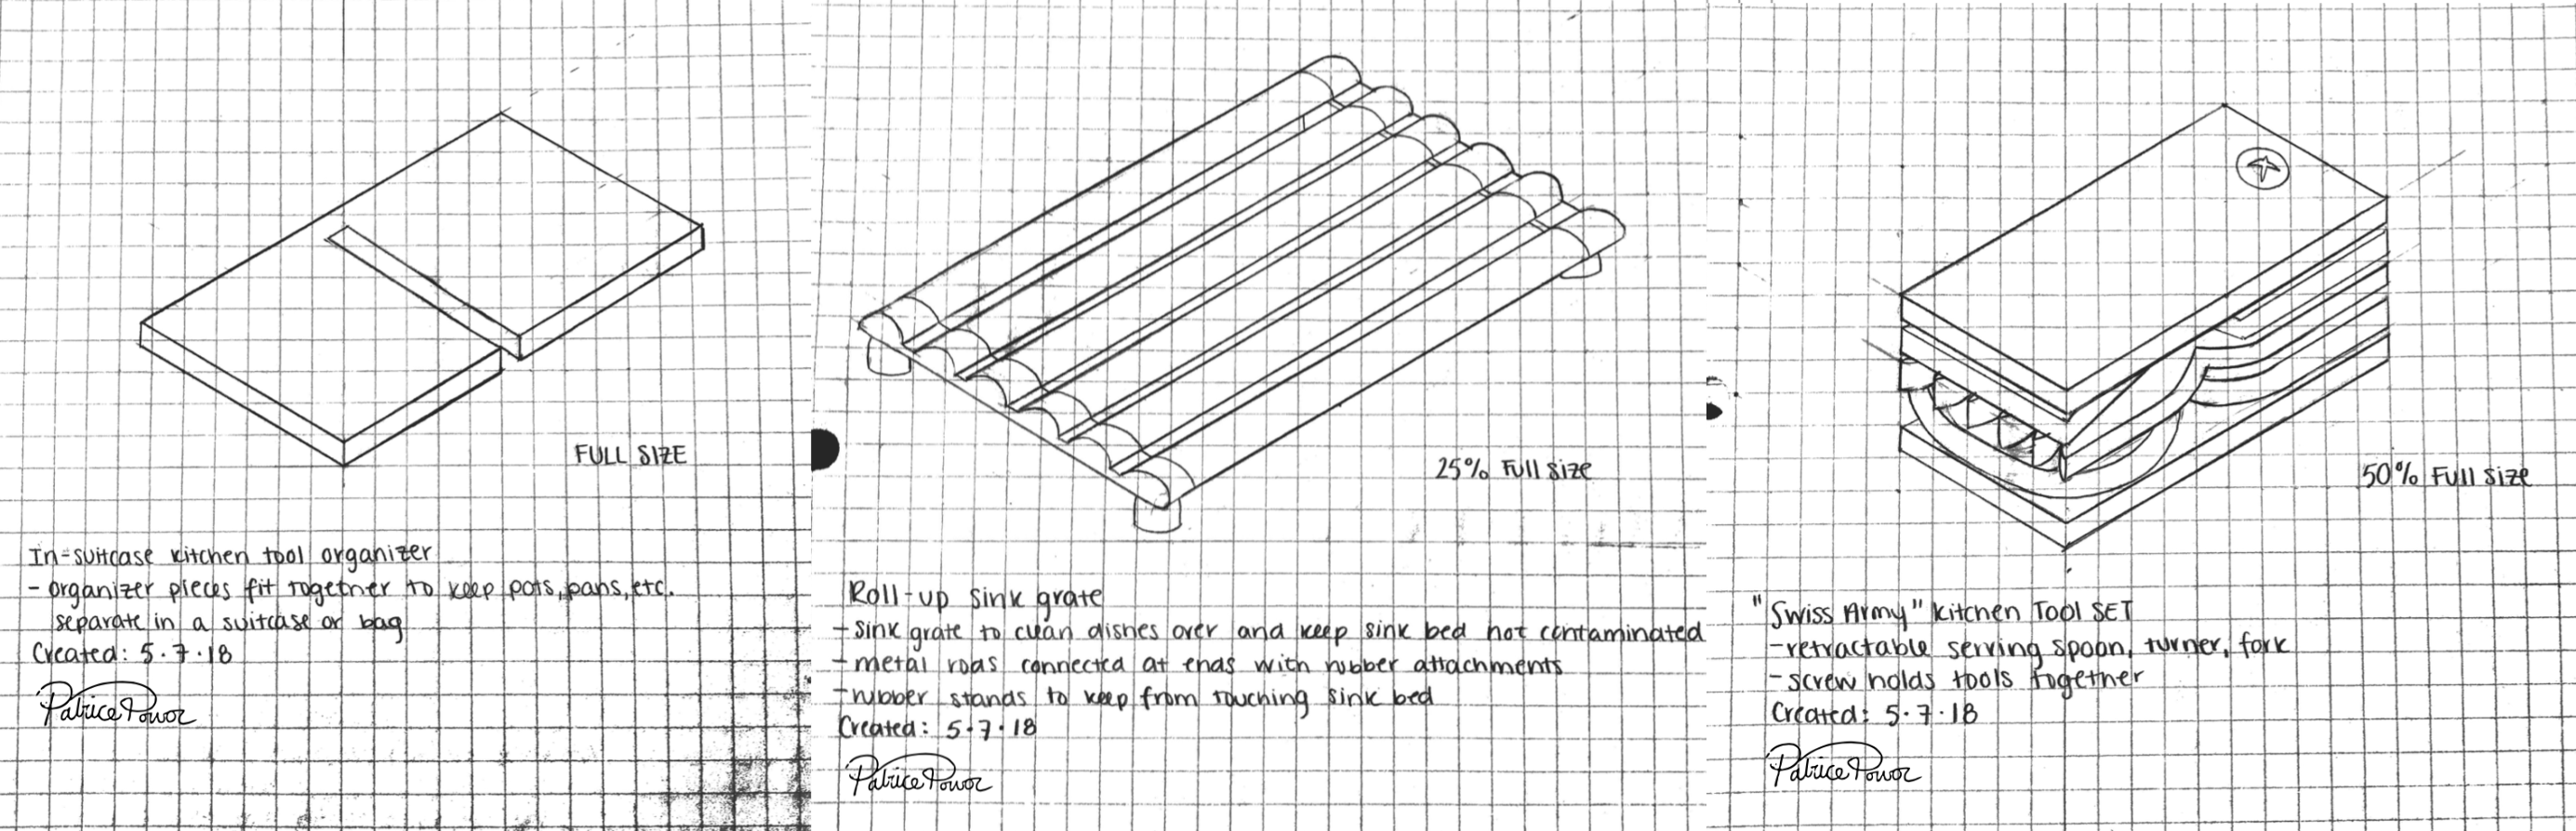 FULL SIZE
In-suitcase kitchen tool organizer
- organizer pieces fit together to keep pots, pans, etc.
separate in a suitcase or bag
Created: 5.7.18
Patrice Power
25% Full size
Roll-up sink grate
- sink grate to clean dishes over and keep sink bed not contaminated
- metal rods connected at ends with rubber attachments
- rubber stands to keep from touching sink bed
Created: 5.7.18
Patrice Power
50% Full size
"Swiss Army" Kitchen Tool SET
- retractable serving spoon, turner, fork
- screw holds tools together
Created: 5.7.18
Patrice Power